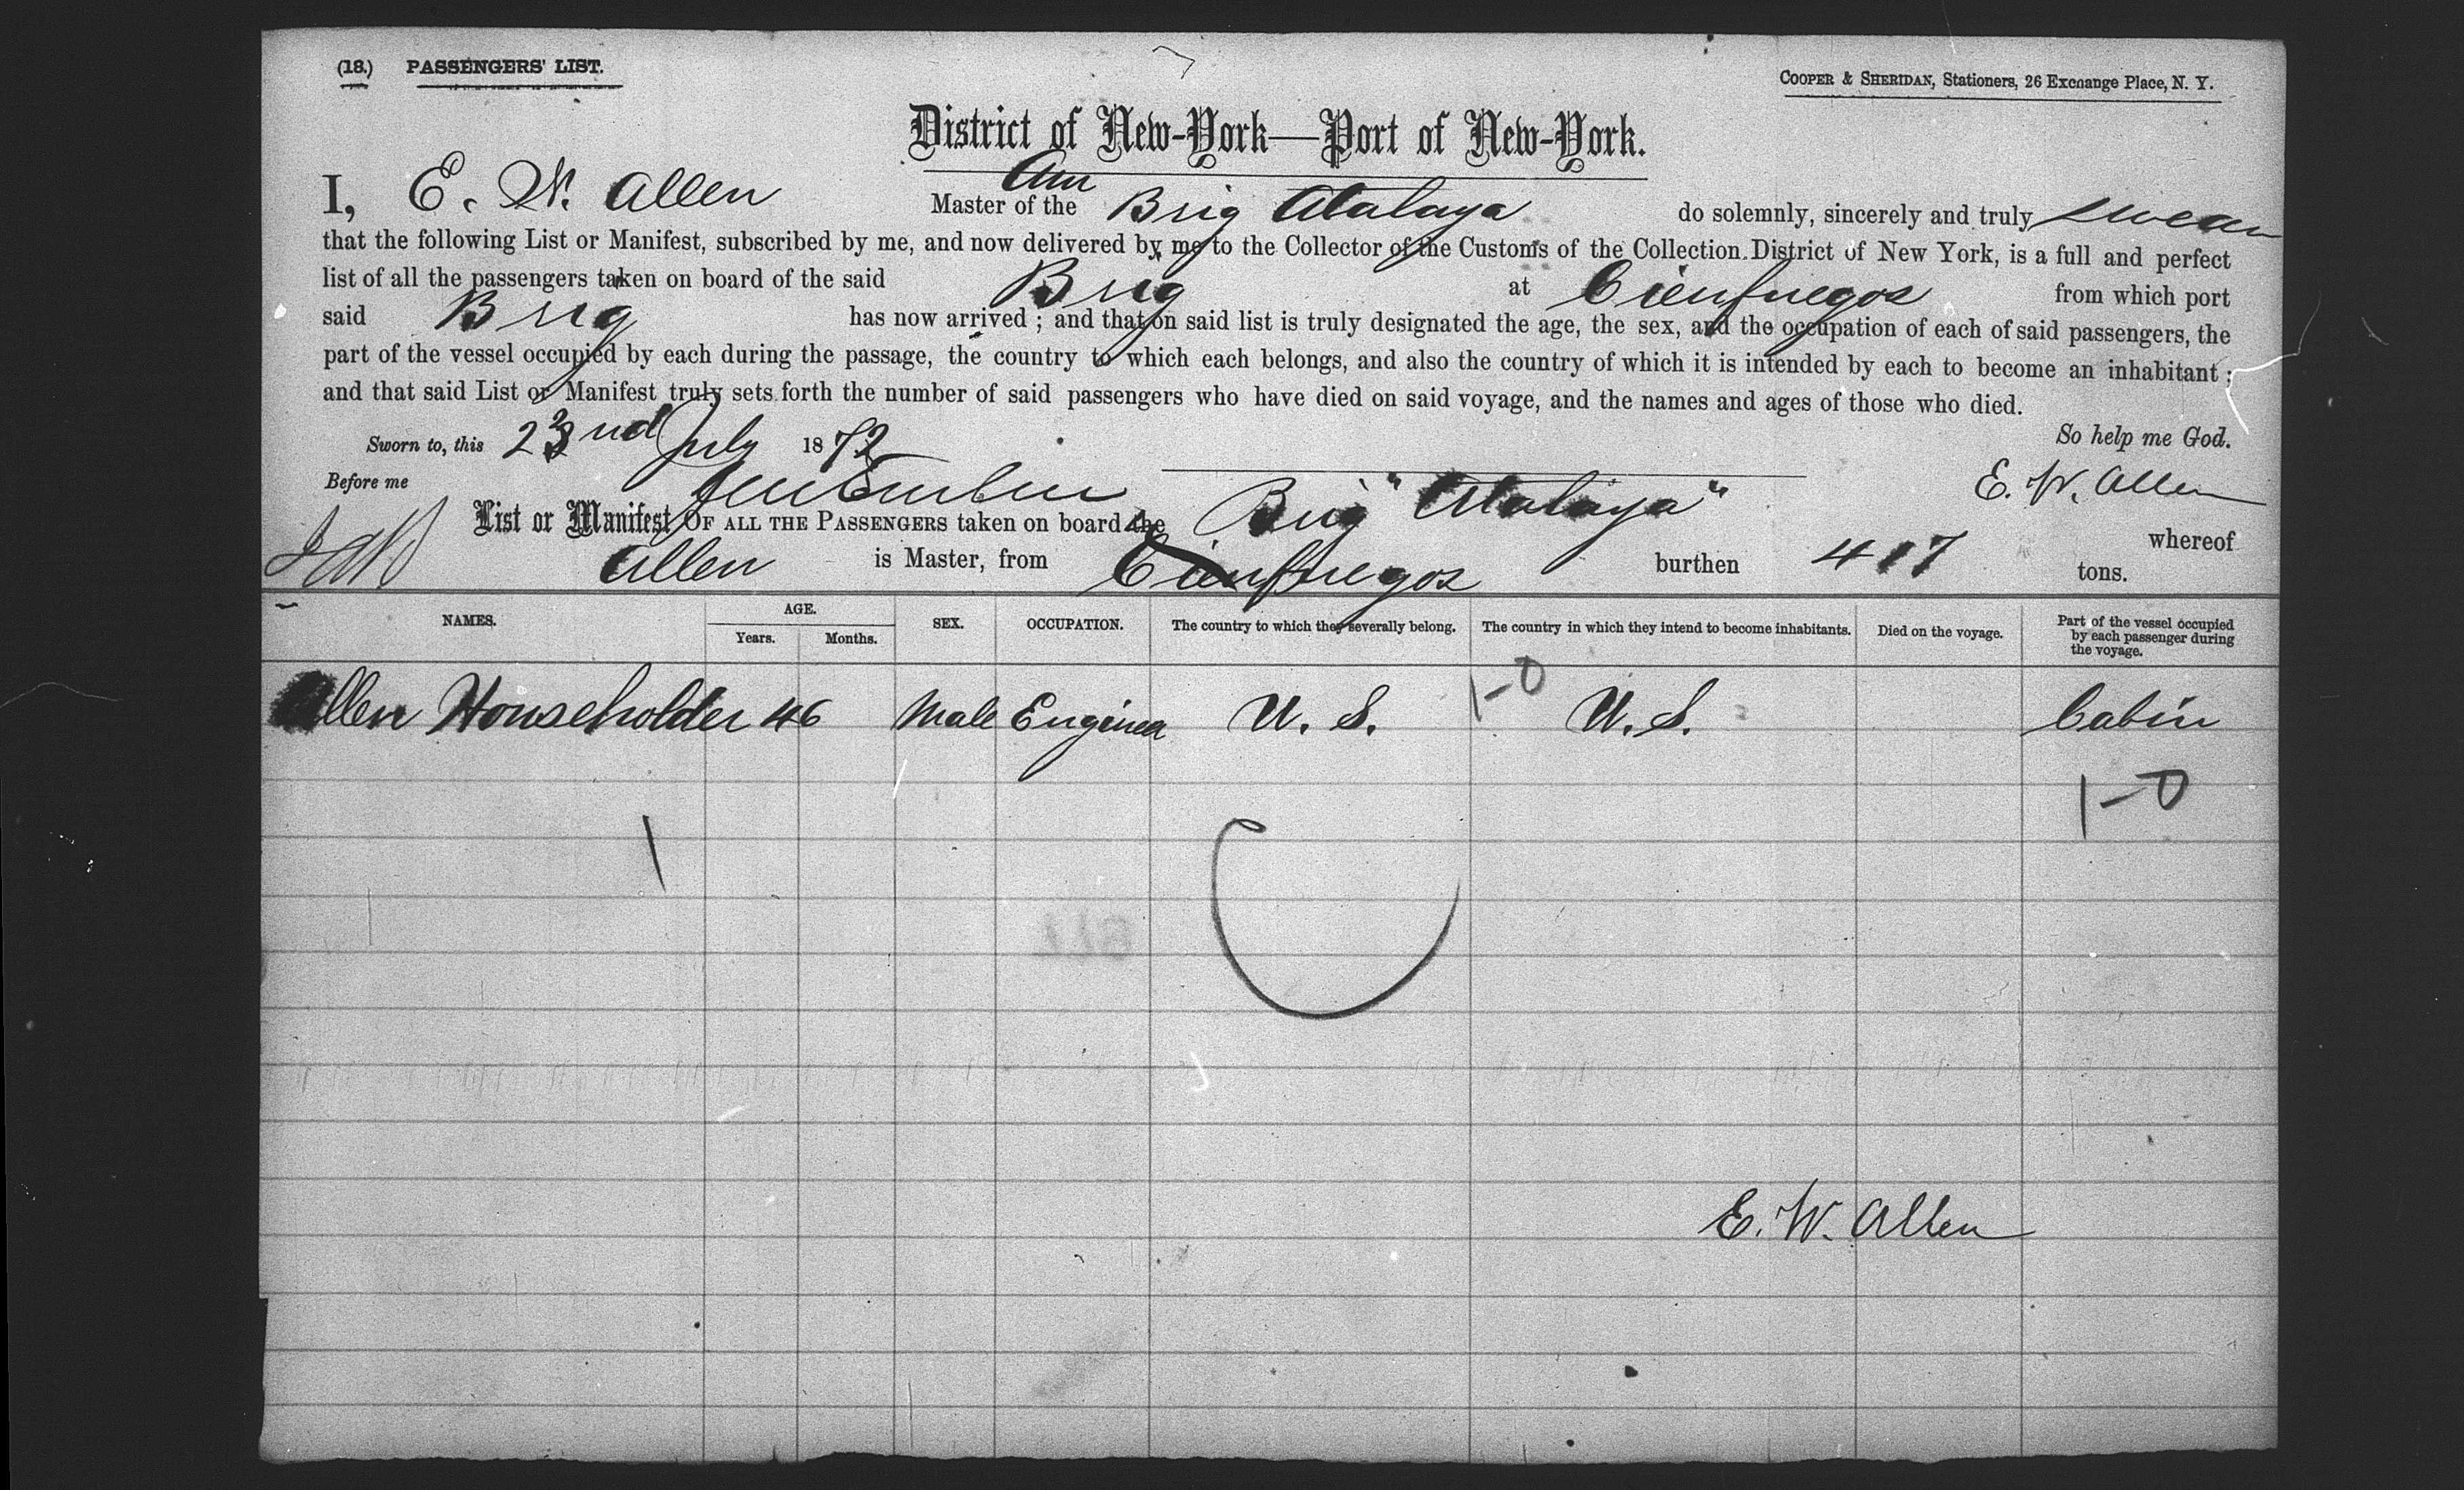 (18.) PASSENGERS' LIST.
COOPER & SHERIDAN, Stationers, 26 Exchange Place, N. Y.
District of New-York—Port of New-York.
I, E. W. Allen Master of the Am Brig Atalaya do solemnly, sincerely and truly swear
that the following List or Manifest, subscribed by me, and now delivered by me to the Collector of the Customs of the Collection District of New York, is a full and perfect
list of all the passengers taken on board of the said Brig at Cienfuegos from which port
said Brig has now arrived; and that on said list is truly designated the age, the sex, and the occupation of each of said passengers, the
part of the vessel occupied by each during the passage, the country to which each belongs, and also the country of which it is intended by each to become an inhabitant;
and that said List or Manifest truly sets forth the number of said passengers who have died on said voyage, and the names and ages of those who died.
Sworn to, this 23nd July 1872 So help me God.
Before me E. W. Allen
List or Manifest OF ALL THE PASSENGERS taken on board the Brig "Atalaya" whereof
Allen is Master, from Cienfuegos burthen 417 tons.
NAMES. AGE. Years. Months. SEX. OCCUPATION. The country to which they severally belong. The country in which they intend to become inhabitants. Died on the voyage. Part of the vessel occupied by each passenger during the voyage.
Allen Householder 46 Male Engineer U. S. 1-0 U. S. Cabin
1-0
1
E. W. Allen